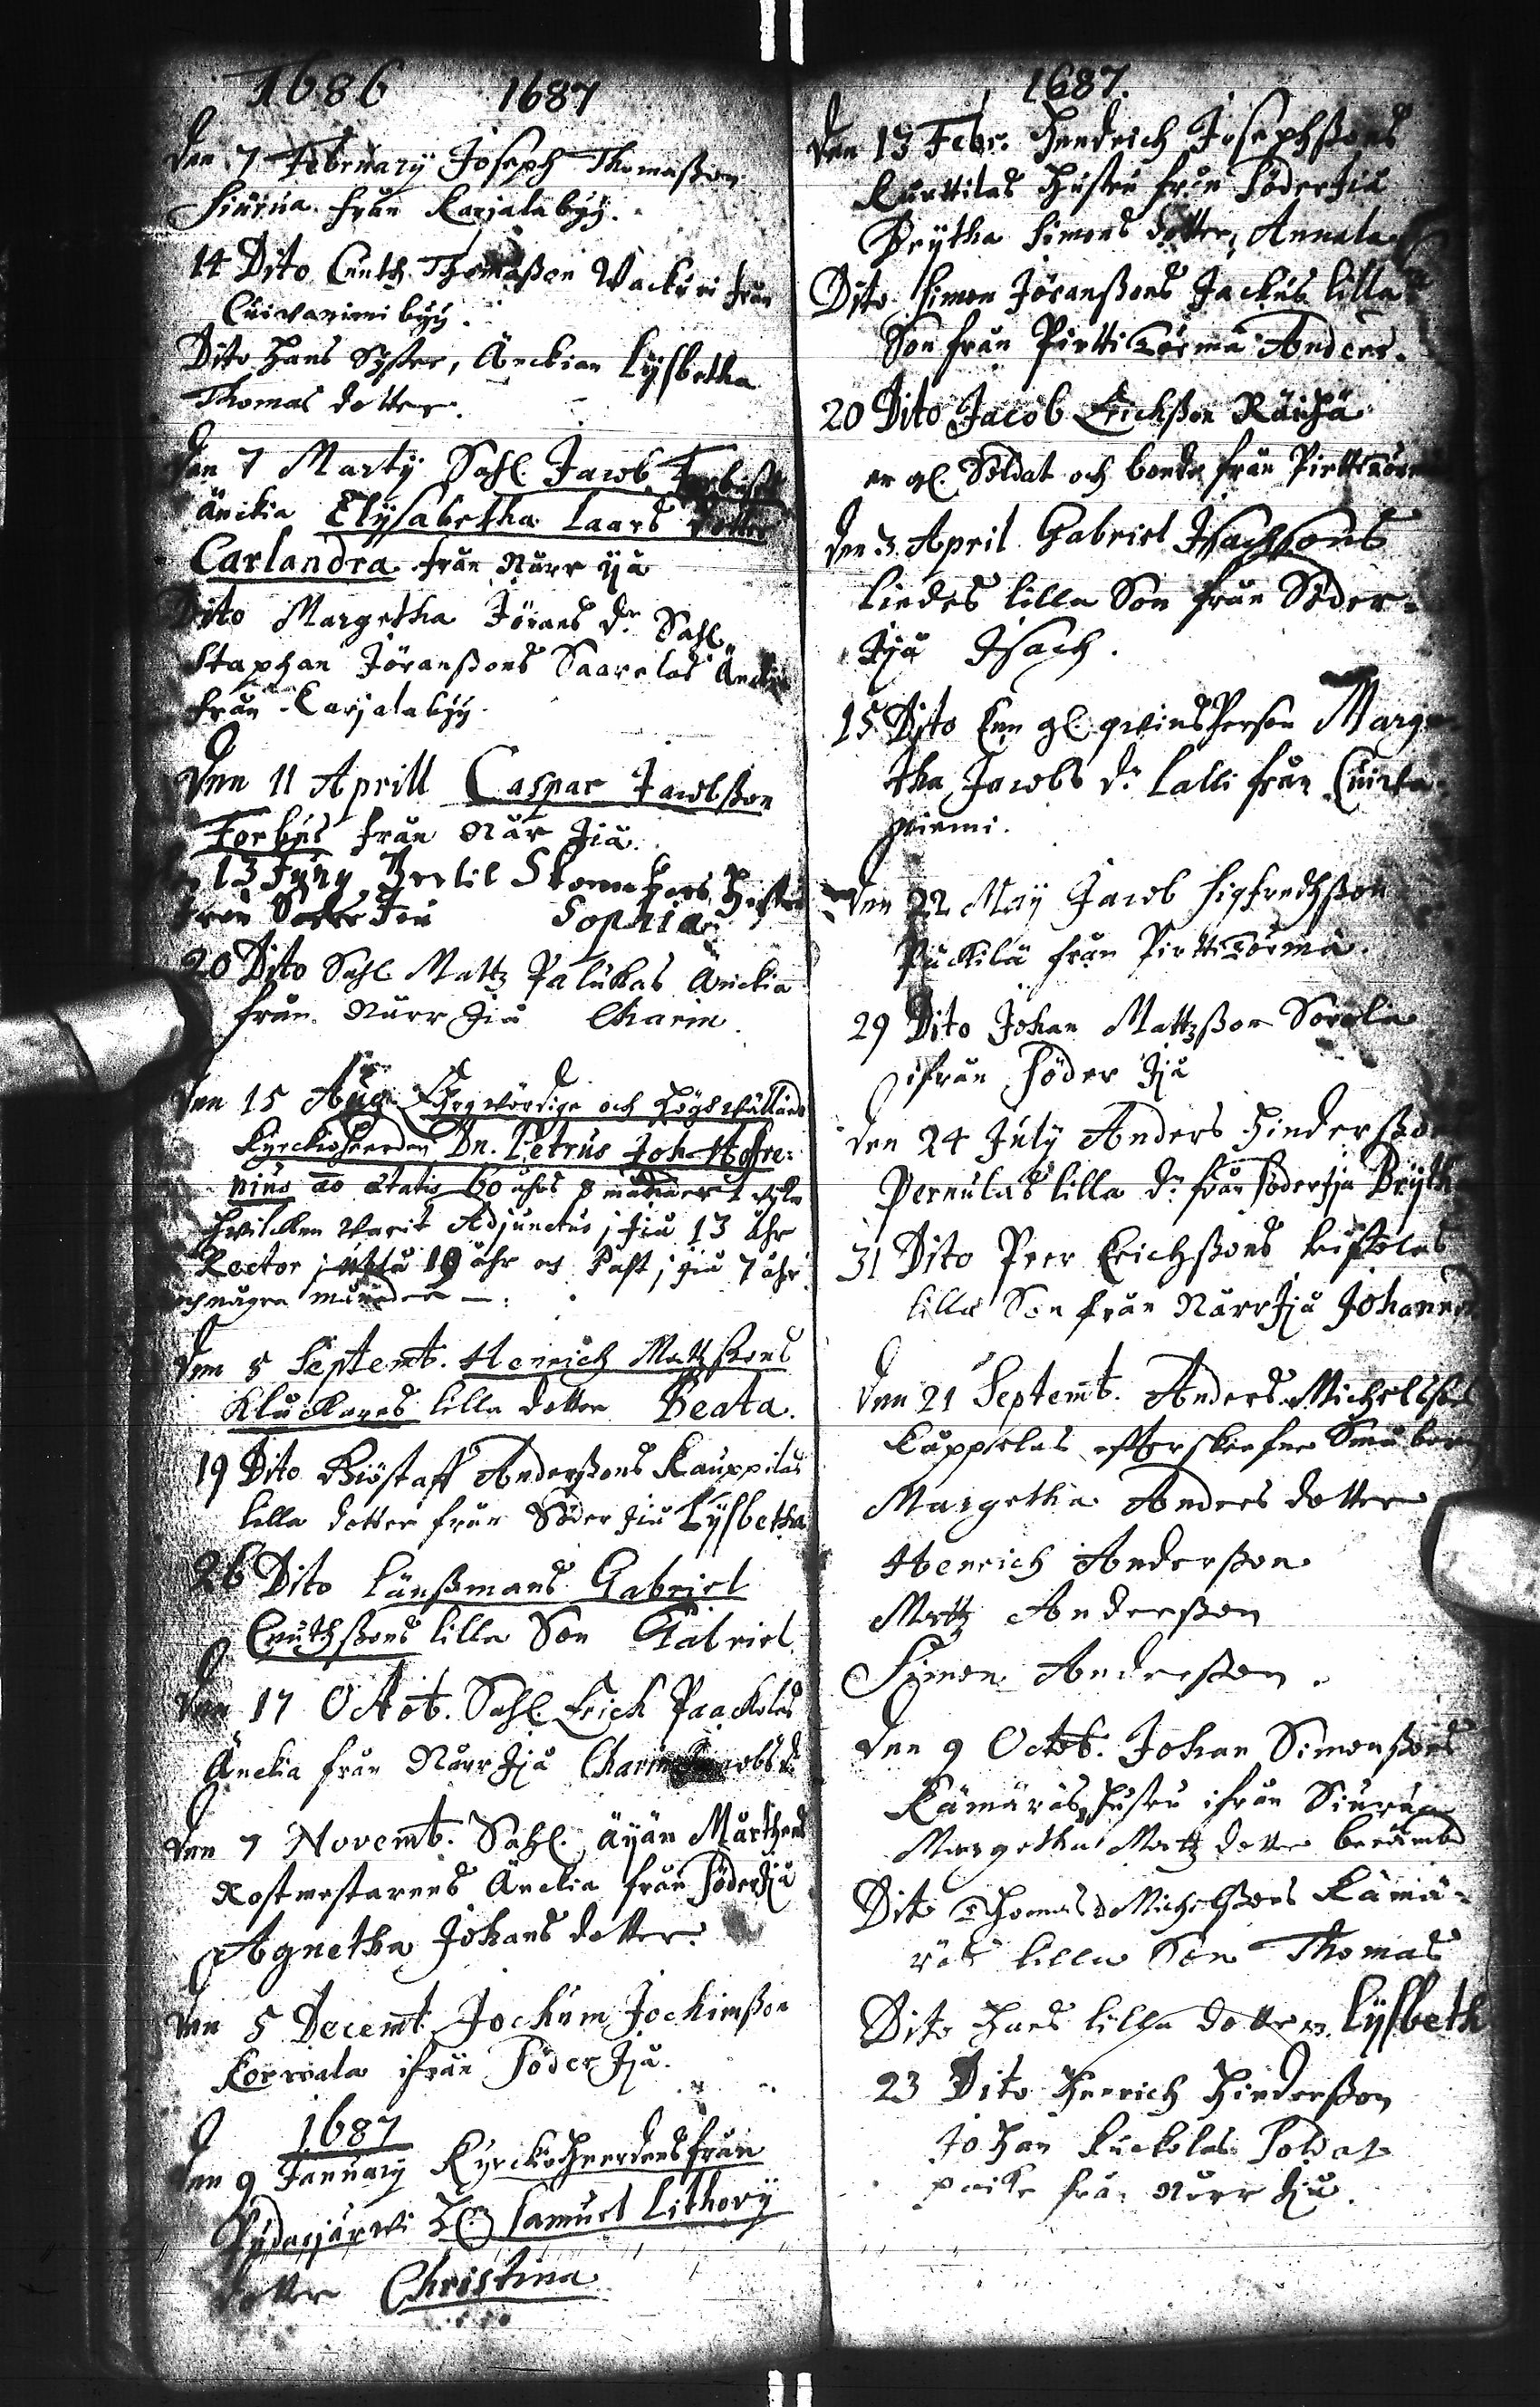 1686 1687
Den 7 February Joseph Thomaßon
Siurua från Karjalabyy.
14 Dito Cnuth Thomaßon Wackuri från
Cuivanimi byy.
Dito Hans Syster, Änckian Lysbetha
Thomas dotter.
Den 7 Marty Sahl. Jacob Forbuses
änckia Elysabetha Laars dotter
Carlandra från Narr ija
Dito Margetha Jörans dr Sahl
Staphan Jöranßons Saarelas Änckia
från Karjalabyy.
Den 11 Aprill Caspar Jacobßon
Forbus från När Jia.
13 Juny Bertil Skomakars Hustru
från Söder Jia Sophia
20 Dito Sahl Mattz Palukas Änckia
från Narr Jia Charin.
Den 15 Aug. Ehrewördige och Högwällärde
Kyrckioheerden Dn. Petrus Joh. Hoffre:
nius ao ætatis 60 åhrs 8 månader 1 wyku
hwilcken warit Adjunctus j Jia 13 åhr
Rector j 19 åhr och Past. j Jia 7 åhr
och några månader —
Den 5 Septemb. Henrich Mattzßons
Kluckares lilla dotter Beata.
19 Dito Giöstaff Anderßons Kauppilas
lilla dotter från Söder Jia Lysbetha
26 Dito Länßmans Gabriel
Cnuthßons lilla Son Gabriel
Den 17 Octob. Sahl. Erich Paackolas
Änckia från Narr Jja Charin Jacobs dr
Den 7 Novemb. Sahl. Äÿän Mårthens
Rostmestarens Änckia från Söder Jja
Agnetha Johans dotter.
Den 5 Decemb Jochum Jochimßon
Korvala ifrån Söder Jja.
1687
Den 9 January Kyrckioheerdens från
Pudasjärwi Hr Samuel Lithovÿ
dotter Christina
1687.
Den 13 Febr. Hendrich Josephßons
Kurttilas Hustru från Söder Jia
Brytha Simons dotter, Annala
Dito Simon Jöranßons Jackus lilla
Son från Pirttitörmä Anders.
20 Dito Jacob Erichßon Räihä
en gl. Soldat och bonde från Pirttitörmä
Den 3 April Gabriel Isachßons
Liedes lilla Son från Söder-
Jja Isach.
15 Dito Een gl. qwins Person Marge
tha Jacobs dr Lalli från Cuiwa
niemi.
Den 22 May Jacob Sigfredhßon
Puckila från Pirttitörmä.
29 Dito Johan Mattzßon Sorola
ifrån Söder Jja
Den 24 July Anders Hinderßons
Pernulas lilla dr från Söder Jja Bryth
31 Dito Peer Erichßons Kestolas
lilla Son från Narr Jja Johannes
Den 21 Septemb. Anders Michelßons
Kuppolas efterskrefne Små barn
Margetha Anders dotter
Henrich Anderßon
Mattz Anderßon
Simon Anderßon.
Den 9 Octob. Johan Simonßons
Kämäräs, Hustru ifrån Siurua
Margetha Mattz dotter berömbd
Dito Thomas Michelßons Kämä-
räs lilla Son Thomas
Dito Hans lilla dotter Lysbeth
23 Dito Henrich Hinderßon
Johan Kuckolas Soldat
poike från Narr Jja.